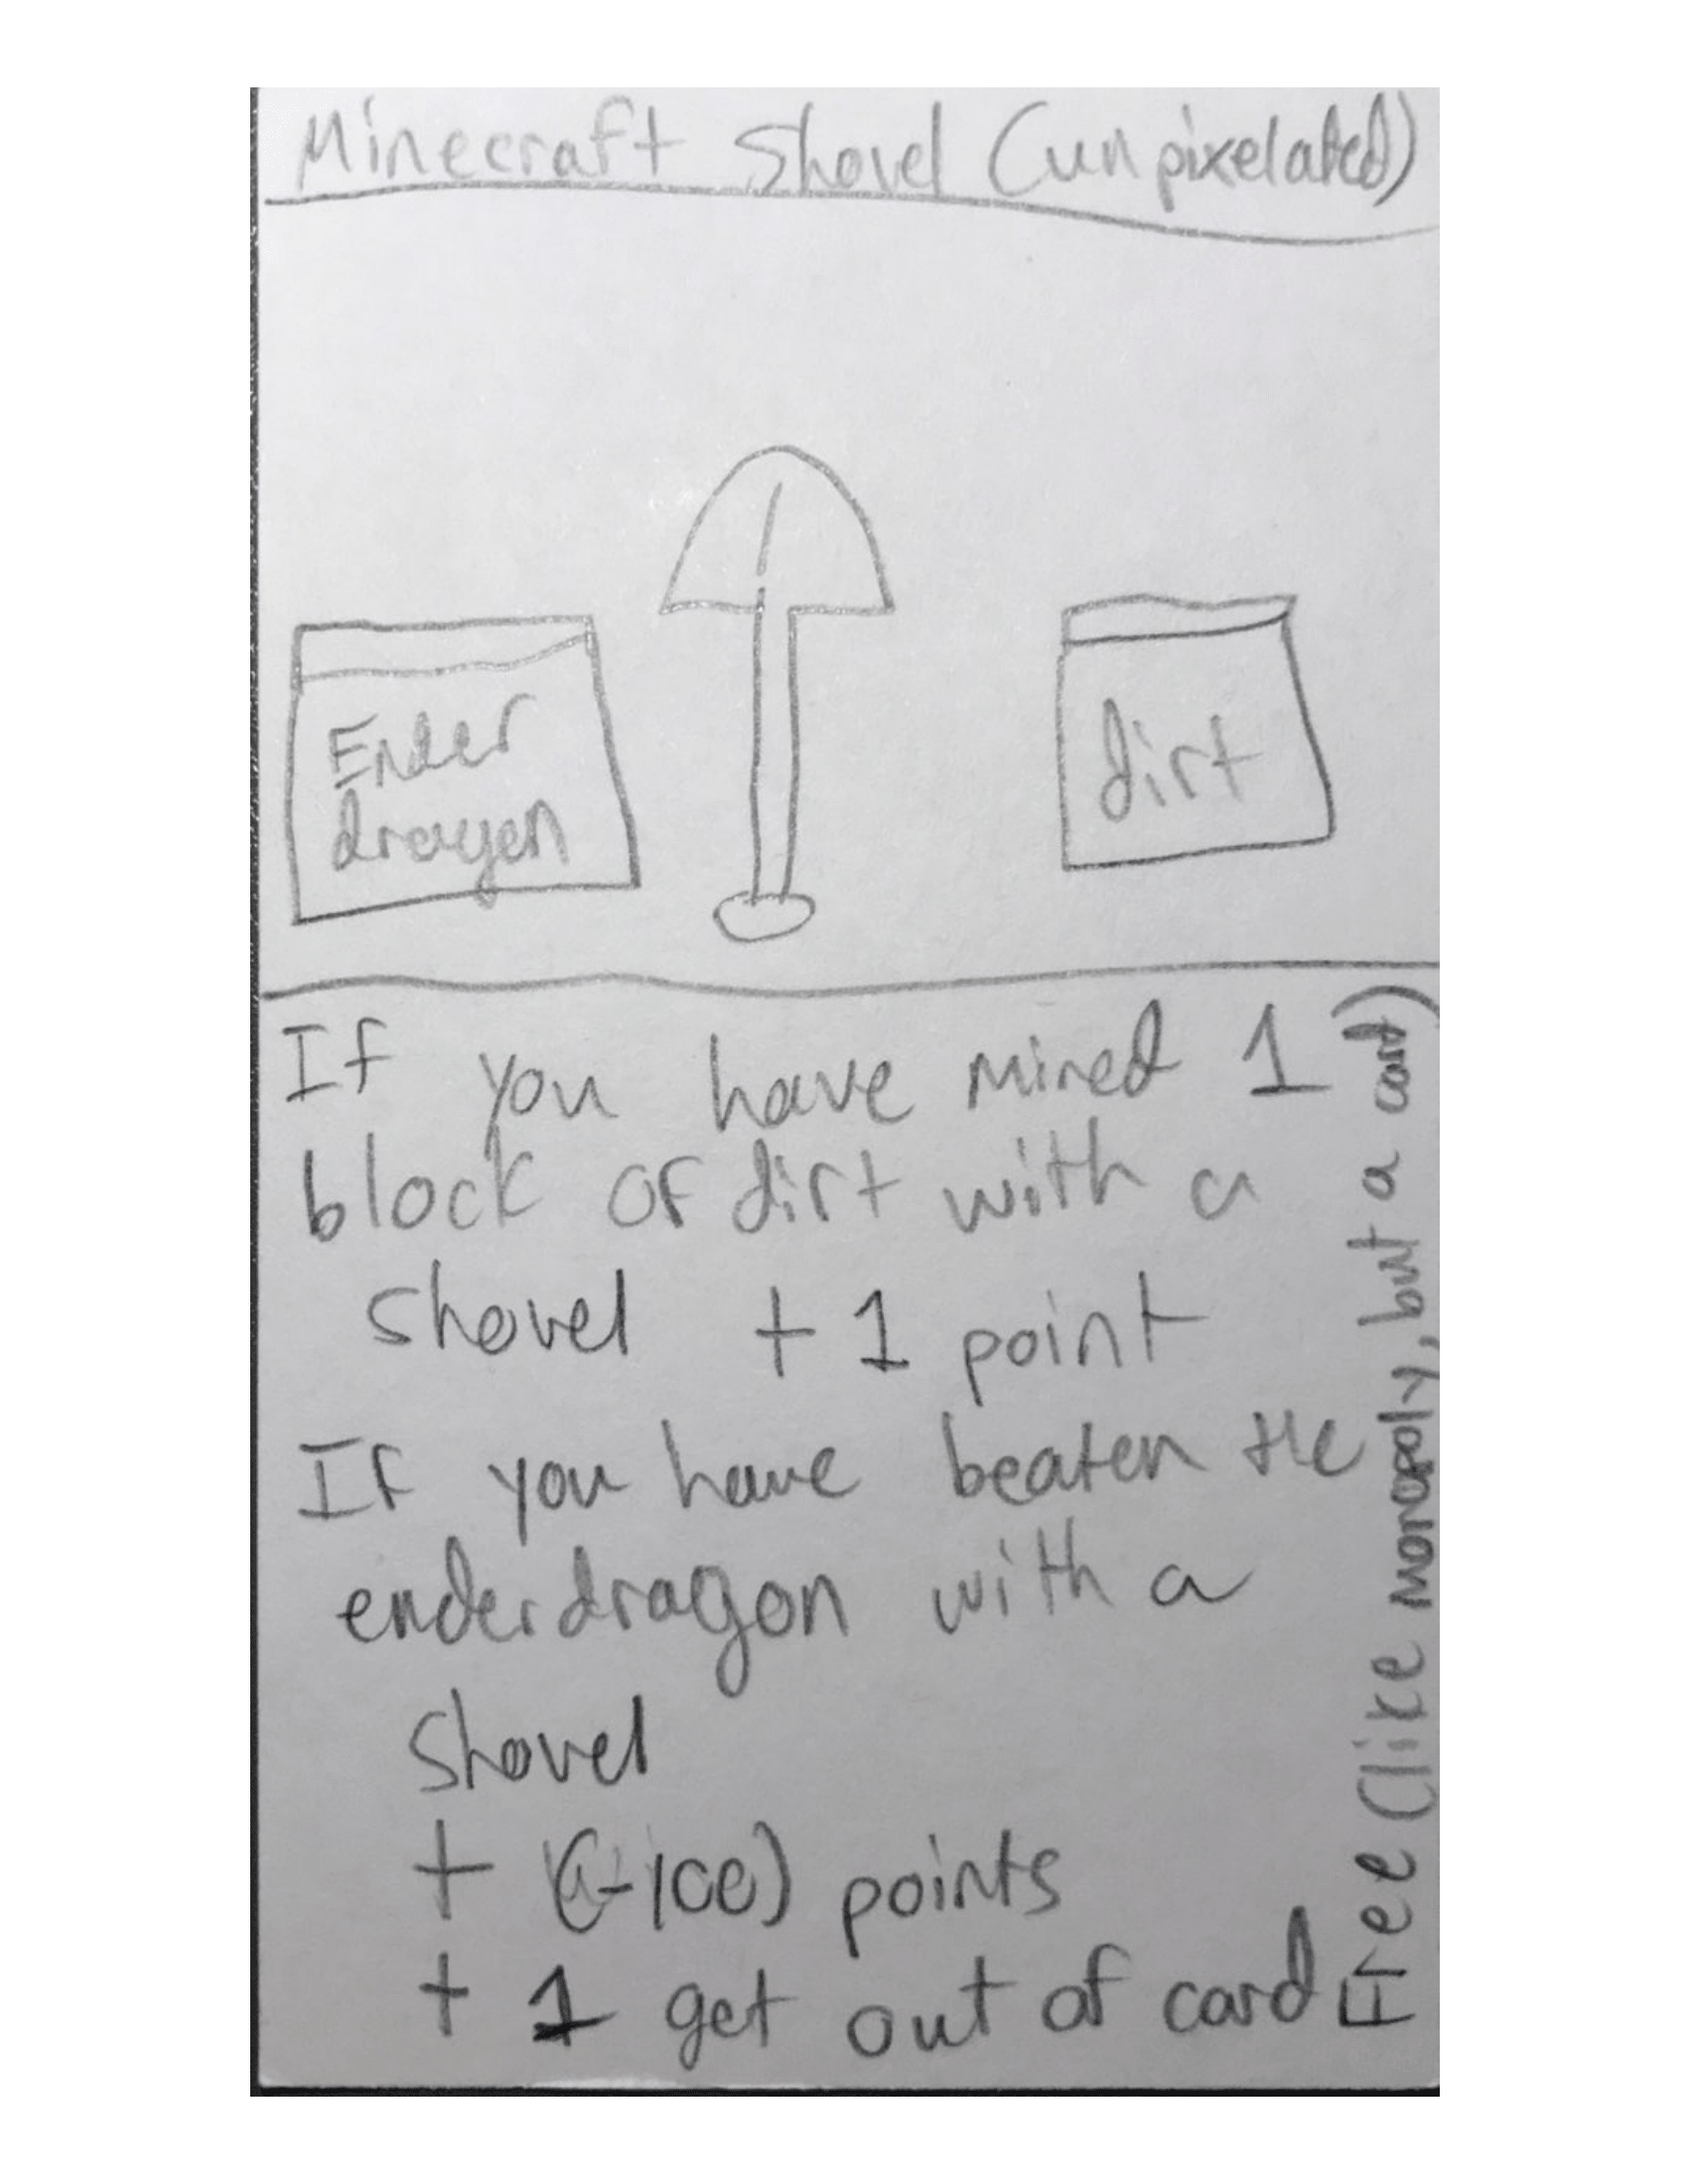 Minecraft Shovel (unpixelated)
Ender
dragen
dirt
If you have mined 1
block of dirt with a
shovel + 1 point
If you have beaten the
enderdragon with a
shovel
+ (-100) points
+ 1 get out of card
Free (like monopoly, but a card)